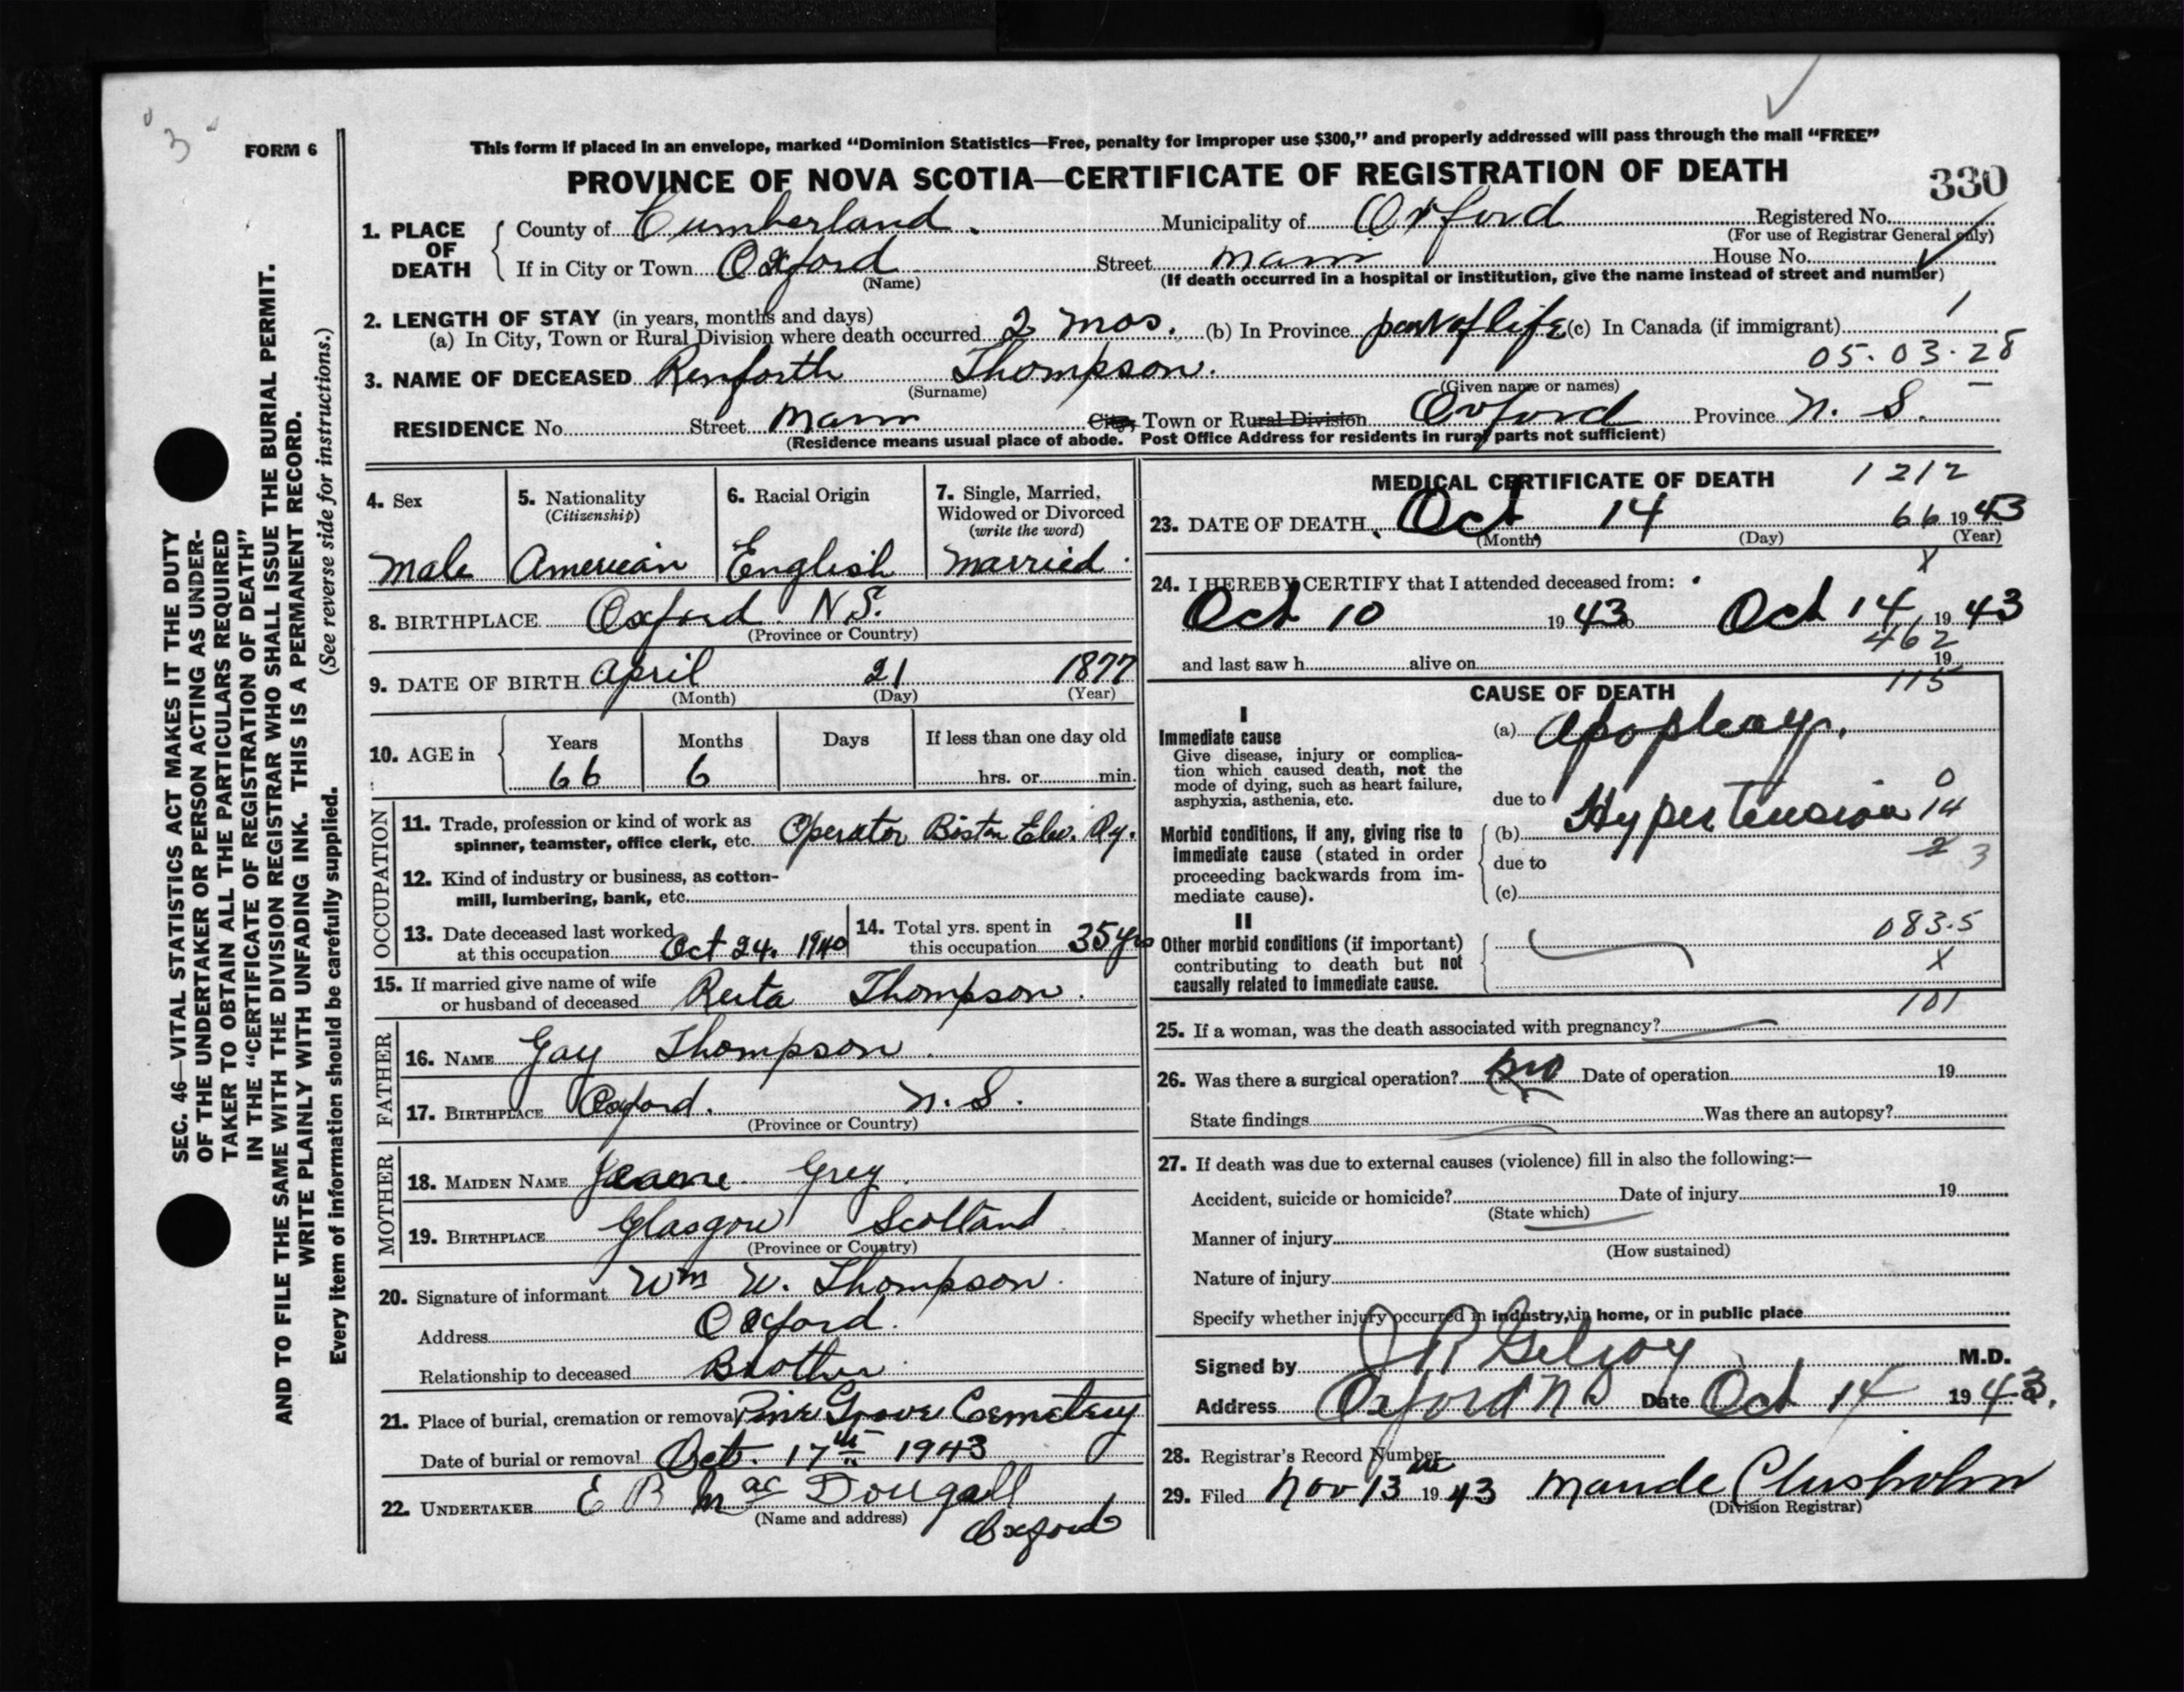 "3"
FORM 6
This form if placed in an envelope, marked “Dominion Statistics—Free, penalty for improper use $300,” and properly addressed will pass through the mail “FREE”
PROVINCE OF NOVA SCOTIA—CERTIFICATE OF REGISTRATION OF DEATH
330
1. PLACE OF DEATH
County of Cumberland. Municipality of Oxford Registered No.
(For use of Registrar General only)
If in City or Town Oxford Street Main House No.
(Name) (If death occurred in a hospital or institution, give the name instead of street and number)
2. LENGTH OF STAY (in years, months and days)
(a) In City, Town or Rural Division where death occurred 2 mos. (b) In Province part of life (c) In Canada (if immigrant)
05-03-28
3. NAME OF DECEASED Renforth Thompson.
(Surname) (Given name or names)
RESIDENCE No. Street Main City, Town or Rural Division Oxford Province N. S.
(Residence means usual place of abode. Post Office Address for residents in rural parts not sufficient)
4. Sex
Male
5. Nationality
(Citizenship)
American
6. Racial Origin
English
7. Single, Married,
Widowed or Divorced
(write the word)
Married.
8. BIRTHPLACE Oxford N.S.
(Province or Country)
9. DATE OF BIRTH April 21 1877
(Month) (Day) (Year)
10. AGE in
Years Months Days If less than one day old
66 6 hrs. or min.
OCCUPATION
11. Trade, profession or kind of work as
spinner, teamster, office clerk, etc. Operator Boston Elev. Ry.
12. Kind of industry or business, as cotton-
mill, lumbering, bank, etc.
13. Date deceased last worked
at this occupation Oct 24. 1940
14. Total yrs. spent in
this occupation 35 yrs
15. If married give name of wife
or husband of deceased Reta Thompson.
FATHER
16. NAME Gay Thompson.
17. BIRTHPLACE Oxford. N. S.
(Province or Country)
MOTHER
18. MAIDEN NAME Grey.
19. BIRTHPLACE Glasgow Scotland
(Province or Country)
20. Signature of informant Wm W. Thompson.
Address Oxford.
Relationship to deceased Brother
21. Place of burial, cremation or removal Pine Grove Cemetery
Date of burial or removal Oct. 17th 1943
22. UNDERTAKER E B MacDougall
(Name and address) Oxford
MEDICAL CERTIFICATE OF DEATH
1212
23. DATE OF DEATH Oct 14 66 1943
(Month) (Day) (Year)
X
24. I HEREBY CERTIFY that I attended deceased from:
Oct 10 1943 to Oct 14, 1943
462
and last saw h alive on 19
115
CAUSE OF DEATH
I
Immediate cause
Give disease, injury or complica-
tion which caused death, not the
mode of dying, such as heart failure,
asphyxia, asthenia, etc.
(a) Apoplexy.
0
due to
Morbid conditions, if any, giving rise to
immediate cause (stated in order
proceeding backwards from im-
mediate cause).
(b) Hypertension 14
due to 2 3
(c)
II
Other morbid conditions (if important)
contributing to death but not
causally related to immediate cause.
083.5
X
101
25. If a woman, was the death associated with pregnancy?
26. Was there a surgical operation? no Date of operation 19
State findings Was there an autopsy?
27. If death was due to external causes (violence) fill in also the following:—
Accident, suicide or homicide? Date of injury 19
(State which)
Manner of injury
(How sustained)
Nature of injury
Specify whether injury occurred in industry, in home, or in public place
Signed by J R Gilroy M.D.
Address Oxford N S Date Oct 14 1943.
28. Registrar's Record Number
29. Filed Nov 13th 1943 Maude Chisholm
(Division Registrar)
SEC. 46—VITAL STATISTICS ACT MAKES IT THE DUTY
OF THE UNDERTAKER OR PERSON ACTING AS UNDER-
TAKER TO OBTAIN ALL THE PARTICULARS REQUIRED
IN THE “CERTIFICATE OF REGISTRATION OF DEATH”
AND TO FILE THE SAME WITH THE DIVISION REGISTRAR WHO SHALL ISSUE THE BURIAL PERMIT.
WRITE PLAINLY WITH UNFADING INK. THIS IS A PERMANENT RECORD.
Every item of information should be carefully supplied. (See reverse side for instructions.)